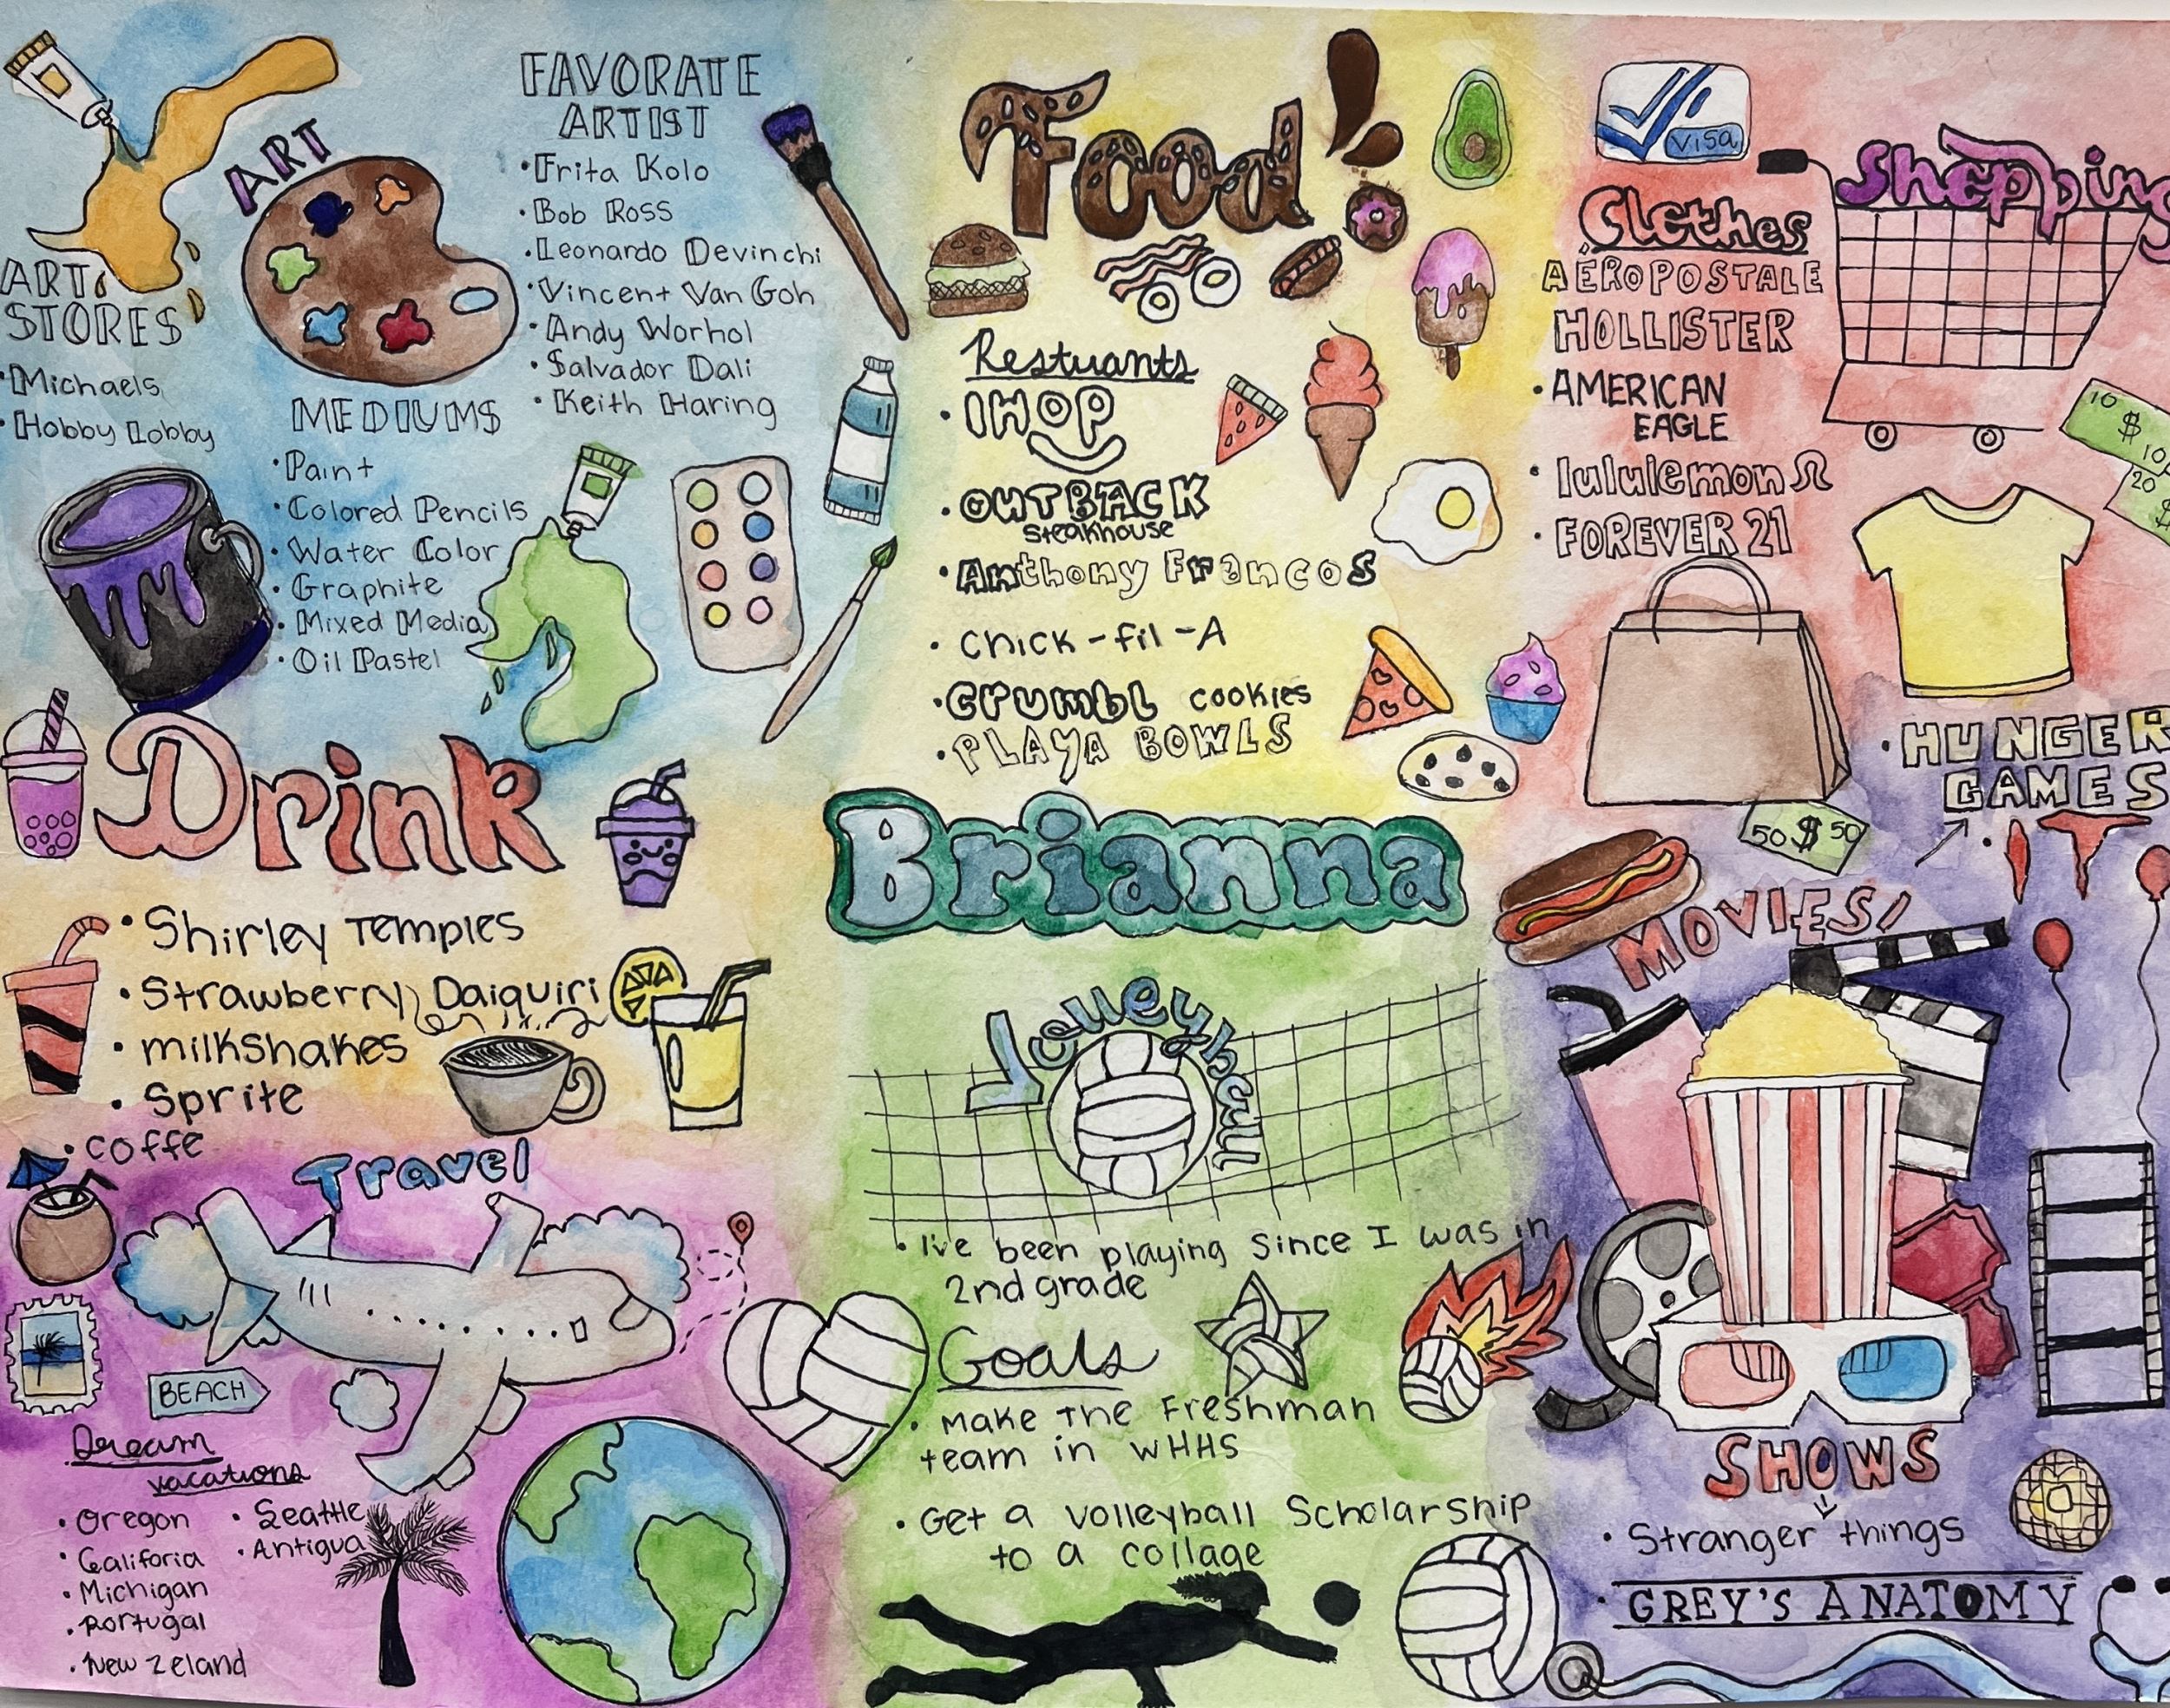 ART
FAVORATE
ARTIST
• Frita Kolo
• Bob Ross
• Leonardo Devinchi
• Vincent Van Goh
• Andy Worhol
• Salvador Dali
• Keith Haring
ART
STORES
• Michaels
• Hobby Lobby
MEDIUMS
• Paint
• Colored Pencils
• Water Color
• Graphite
• Mixed Media
• Oil Pastel
Drink
• Shirley Temples
• Strawberry Daiquiri
• milkshakes
• Sprite
• coffe
Travel
BEACH
Dream
vacations
• Oregon
• Califoria
• Michigan
• Portugal
• New Zeland
• Seattle
• Antigua
Food!
Restuants
• IHOP
• OUTBACK
steakhouse
• Anthony Francos
• chick-fil-A
• crumbl cookies
• PLAYA BOWLS
Brianna
Volleyball
• I've been playing since I was in
2nd grade
Goals
• Make the Freshman
team in WHHS
• Get a volleyball Scholarship
to a collage
VISA
Shopping
Clothes
• AÉROPOSTALE
HOLLISTER
• AMERICAN
EAGLE
• lululemon
• FOREVER 21
10 $ 10
20 $
50 $ 50
• HUNGER
GAMES
• IT
MOVIES!
SHOWS
• Stranger things
• GREY'S ANATOMY